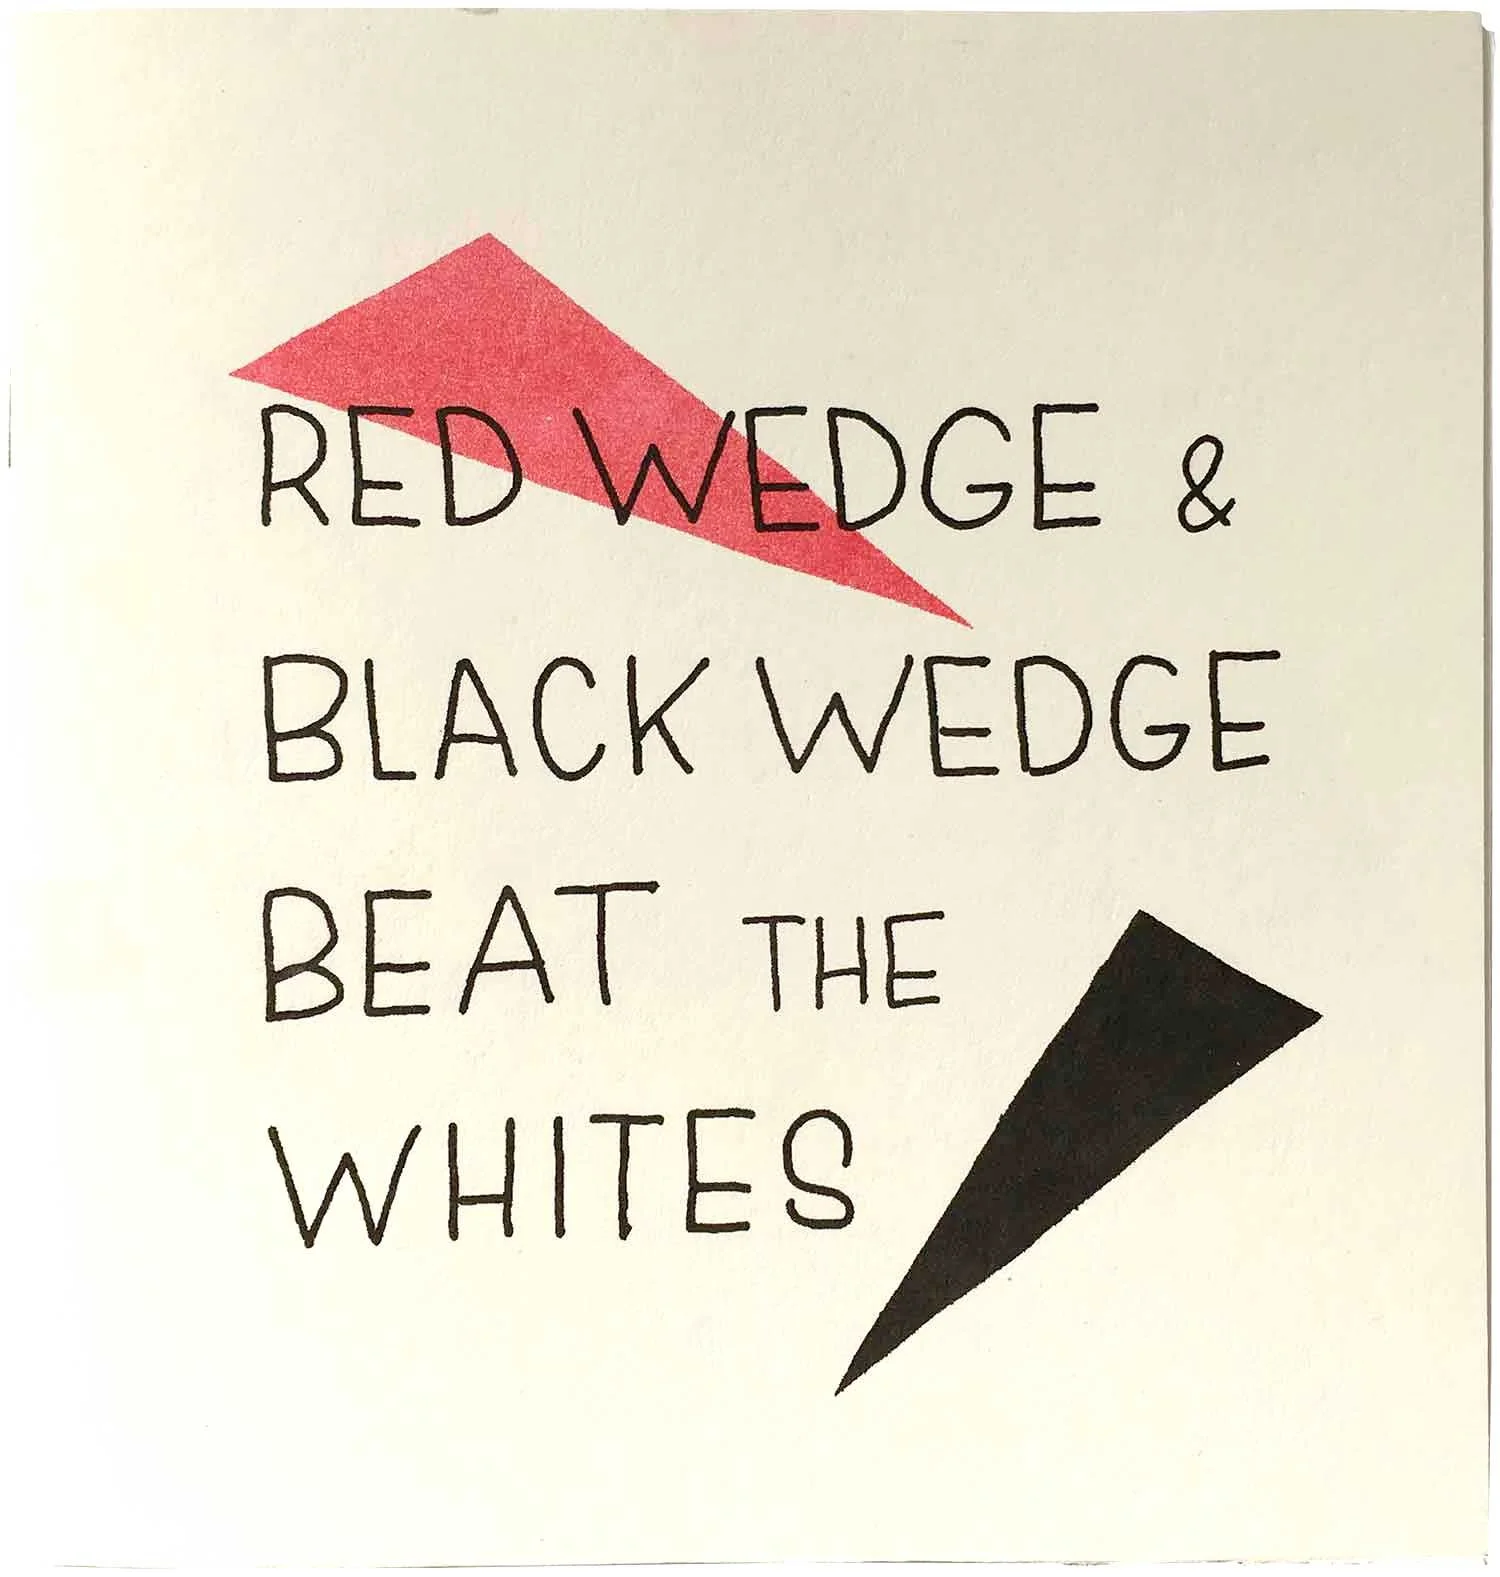 RED WEDGE &
BLACK WEDGE
BEAT THE
WHITES